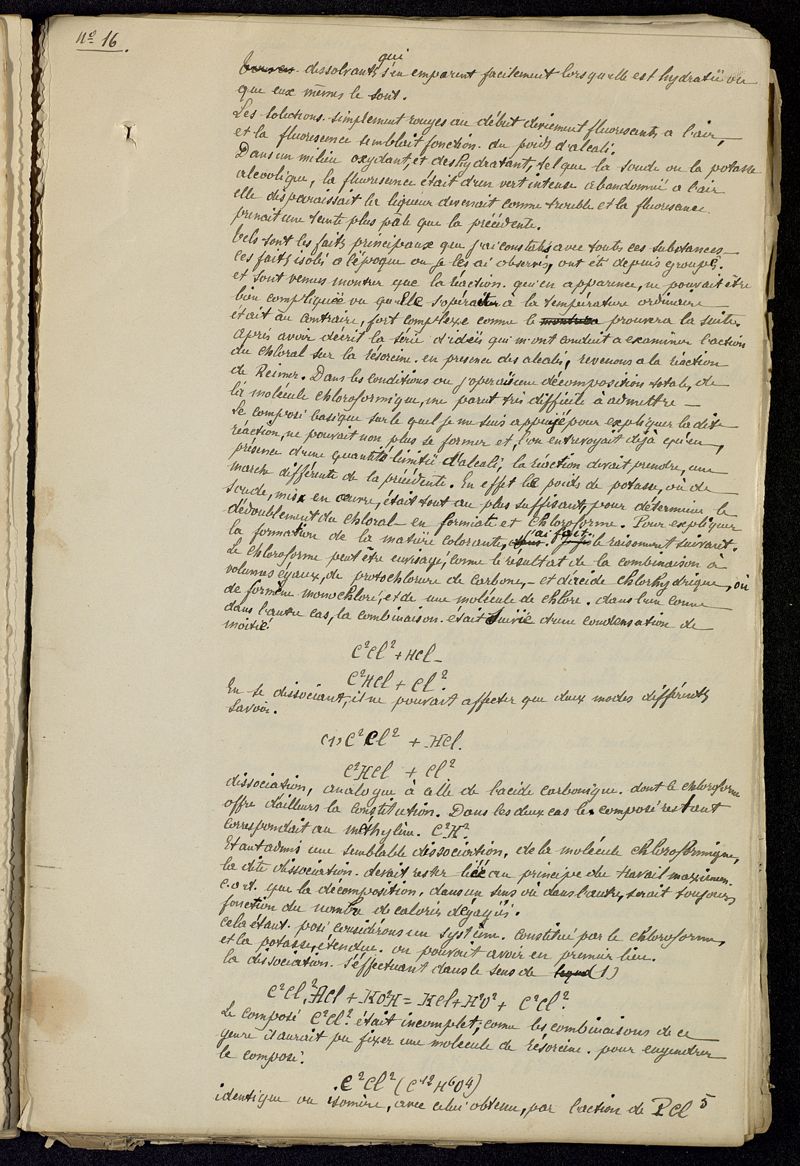 nº 16.
qui
dissolvants s'en emparent facilement lorsqu'elle est hydratée ou
que eux mêmes le sont.
Les solutions simplement rouges au début deviennent fluorescents a l'air,
et la fluorescence semblait fonction du poids d'alcali.
Dans un milieu oxydant, et deshydratant, tel que la soude ou la potasse
alcoolique, la fluorescence était d'un vert intense abandonnée a l'air
elle disparaissait la liqueur devenait comme trouble et la fluorescence
prenait une teinte plus pâle que la précédente.
tels sont les faits principaux que j'ai constatés avec toutes ces substances
ces faits isolés a l'époque ou je les ai observés, ont été depuis groupés.
et sont venus montrer que la réaction. qui en apparence, ne pouvait être
bien compliquée vu qu'elle s'opérait a la température ordinaire
était au contraire, fort complexe comme le prouvera la suite.
Après avoir décrit la série d'idées qui m'ont conduit a examiner l'action
du chloral sur la résorcine. en presence des alcalis, revenons a la réaction
de Reimer. Dans les conditions ou j'operais une décomposition totale, de
la molécule chloroformique, me parut très difficile à admettre
Le composé basique sur le quel je me suis appuyé pour expliquer la dite
réaction, ne pouvait non plus se former et, l'on entrevoyait déjà qu'en,
présence d'une quantité limitée d'alcali, la réaction devait prendre, une
marche différente de la précédente. En effet le poids de potasse, ou de
soude, mis en œuvre, était tout au plus suffisant, pour déterminer le
dédoublement du chloral en formiate et chloroforme. Pour expliquer
la formation de la matière colorante, j'ai fait le raisonment suivant.
Le chloroforme peut être envisagé, comme le résultat de la combinaison à
volumes égaux, de protochlorure de carbone, et d'acide chlorhydrique, ou
de formène monochloré, et de une molécule de chlore. dans l'un comme
dans l'autre cas, la combinaison était suivie d'une condensation de
moitié.
C²Cl² + HCl
C²HCl + Cl²
En se dissociant, il ne pouvait affecter que deux modes différents
savoir.
(1) C²Cl² + HCl.
C²HCl + Cl²
dissociation, analogue à celle de l'acide carbonique. dont le chloroforme
offre d'ailleurs la constitution. Dans les deux cas le composé restant
correspondait au méthylène. C²H².
Etant admis une semblable dissociation, de la molécule chloroformique,
la dite dissociation. devait rester liée au principe du travail maximum.
c.a.t. que la décomposition, dans un sens ou dans l'autre, serait toujours
fonction du nombre de calories dégagés.
cela étant. posé considérons un système. constitué par le chloroforme,
et la potasse, étendue. on pouvait avoir en premier lieu.
la dissociation. s'effectuant dans le sens de (1)
C²Cl², HCl + KO²H = KCl + H²O² + C²Cl².
Le composé C²Cl² était incomplet, comme les combinaisons de ce
genre il aurait pu fixer une molécule de résorcine. pour engendrer
le composé.
C²Cl² (C¹²H⁶O⁴)
identique ou isomère, avec celui obtenu, par l'action de PCl⁵